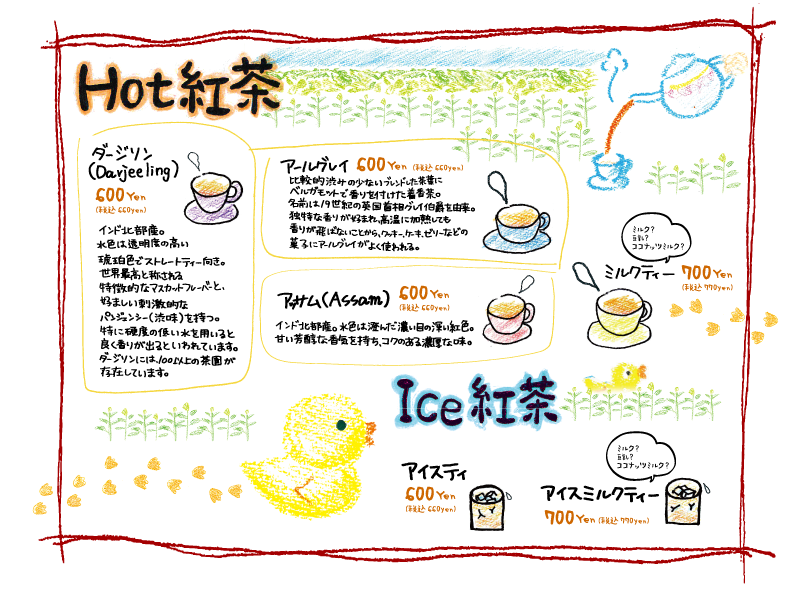 Hot紅茶
ダージリン
(Darjeeling)
600Yen
(税込 660yen)
インド北部産。
水色は透明度の高い
琥珀色でストレートティー向き。
世界最高と称される
特徴的なマスカットフレーバーと、
好ましい刺激的な
パンジェンシー(渋味)を持つ。
特に硬度の低い水を用いると
良く香りが出るといわれています。
ダージリンには、100以上の茶園が
存在しています。
アールグレイ 600Yen (税込 660yen)
比較的渋みの少ないブレンドした茶葉に
ベルガモットで香りを付けた着香茶。
名前は19世紀の英国首相グレイ伯爵を由来。
独特な香りが好まれ、高温に加熱しても
香りが飛ばないことから、クッキー、ケーキ、ゼリーなどの
菓子にアールグレイがよく使われる。
アッサム(Assam) 600Yen
(税込 660yen)
インド北部産。水色は澄んだ濃い目の深い紅色。
甘い芳醇な香気を持ち、コクのある濃厚な味。
ミルク?
豆乳?
ココナッツミルク?
ミルクティー 700Yen
(税込 770yen)
Ice紅茶
アイスティ
600Yen
(税込 660yen)
ミルク?
豆乳?
ココナッツミルク?
アイスミルクティー
700Yen (税込 770yen)